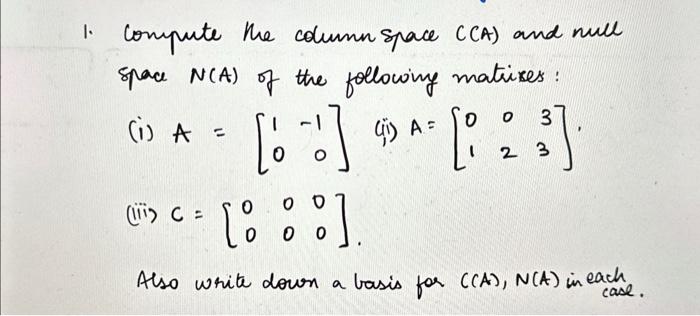 1. Compute the column space C(A) and null
space N(A) of the following matrixes :
(i) A = [1 -1; 0 0] (ii) A = [0 0 3; 1 2 3],
(iii) C = [0 0 0; 0 0 0].
Also write down a basis for C(A), N(A) in each
case.